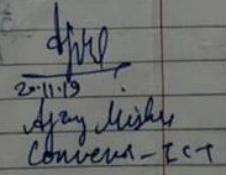 20.11.19
Ajay Mishra
Convenor - ICT